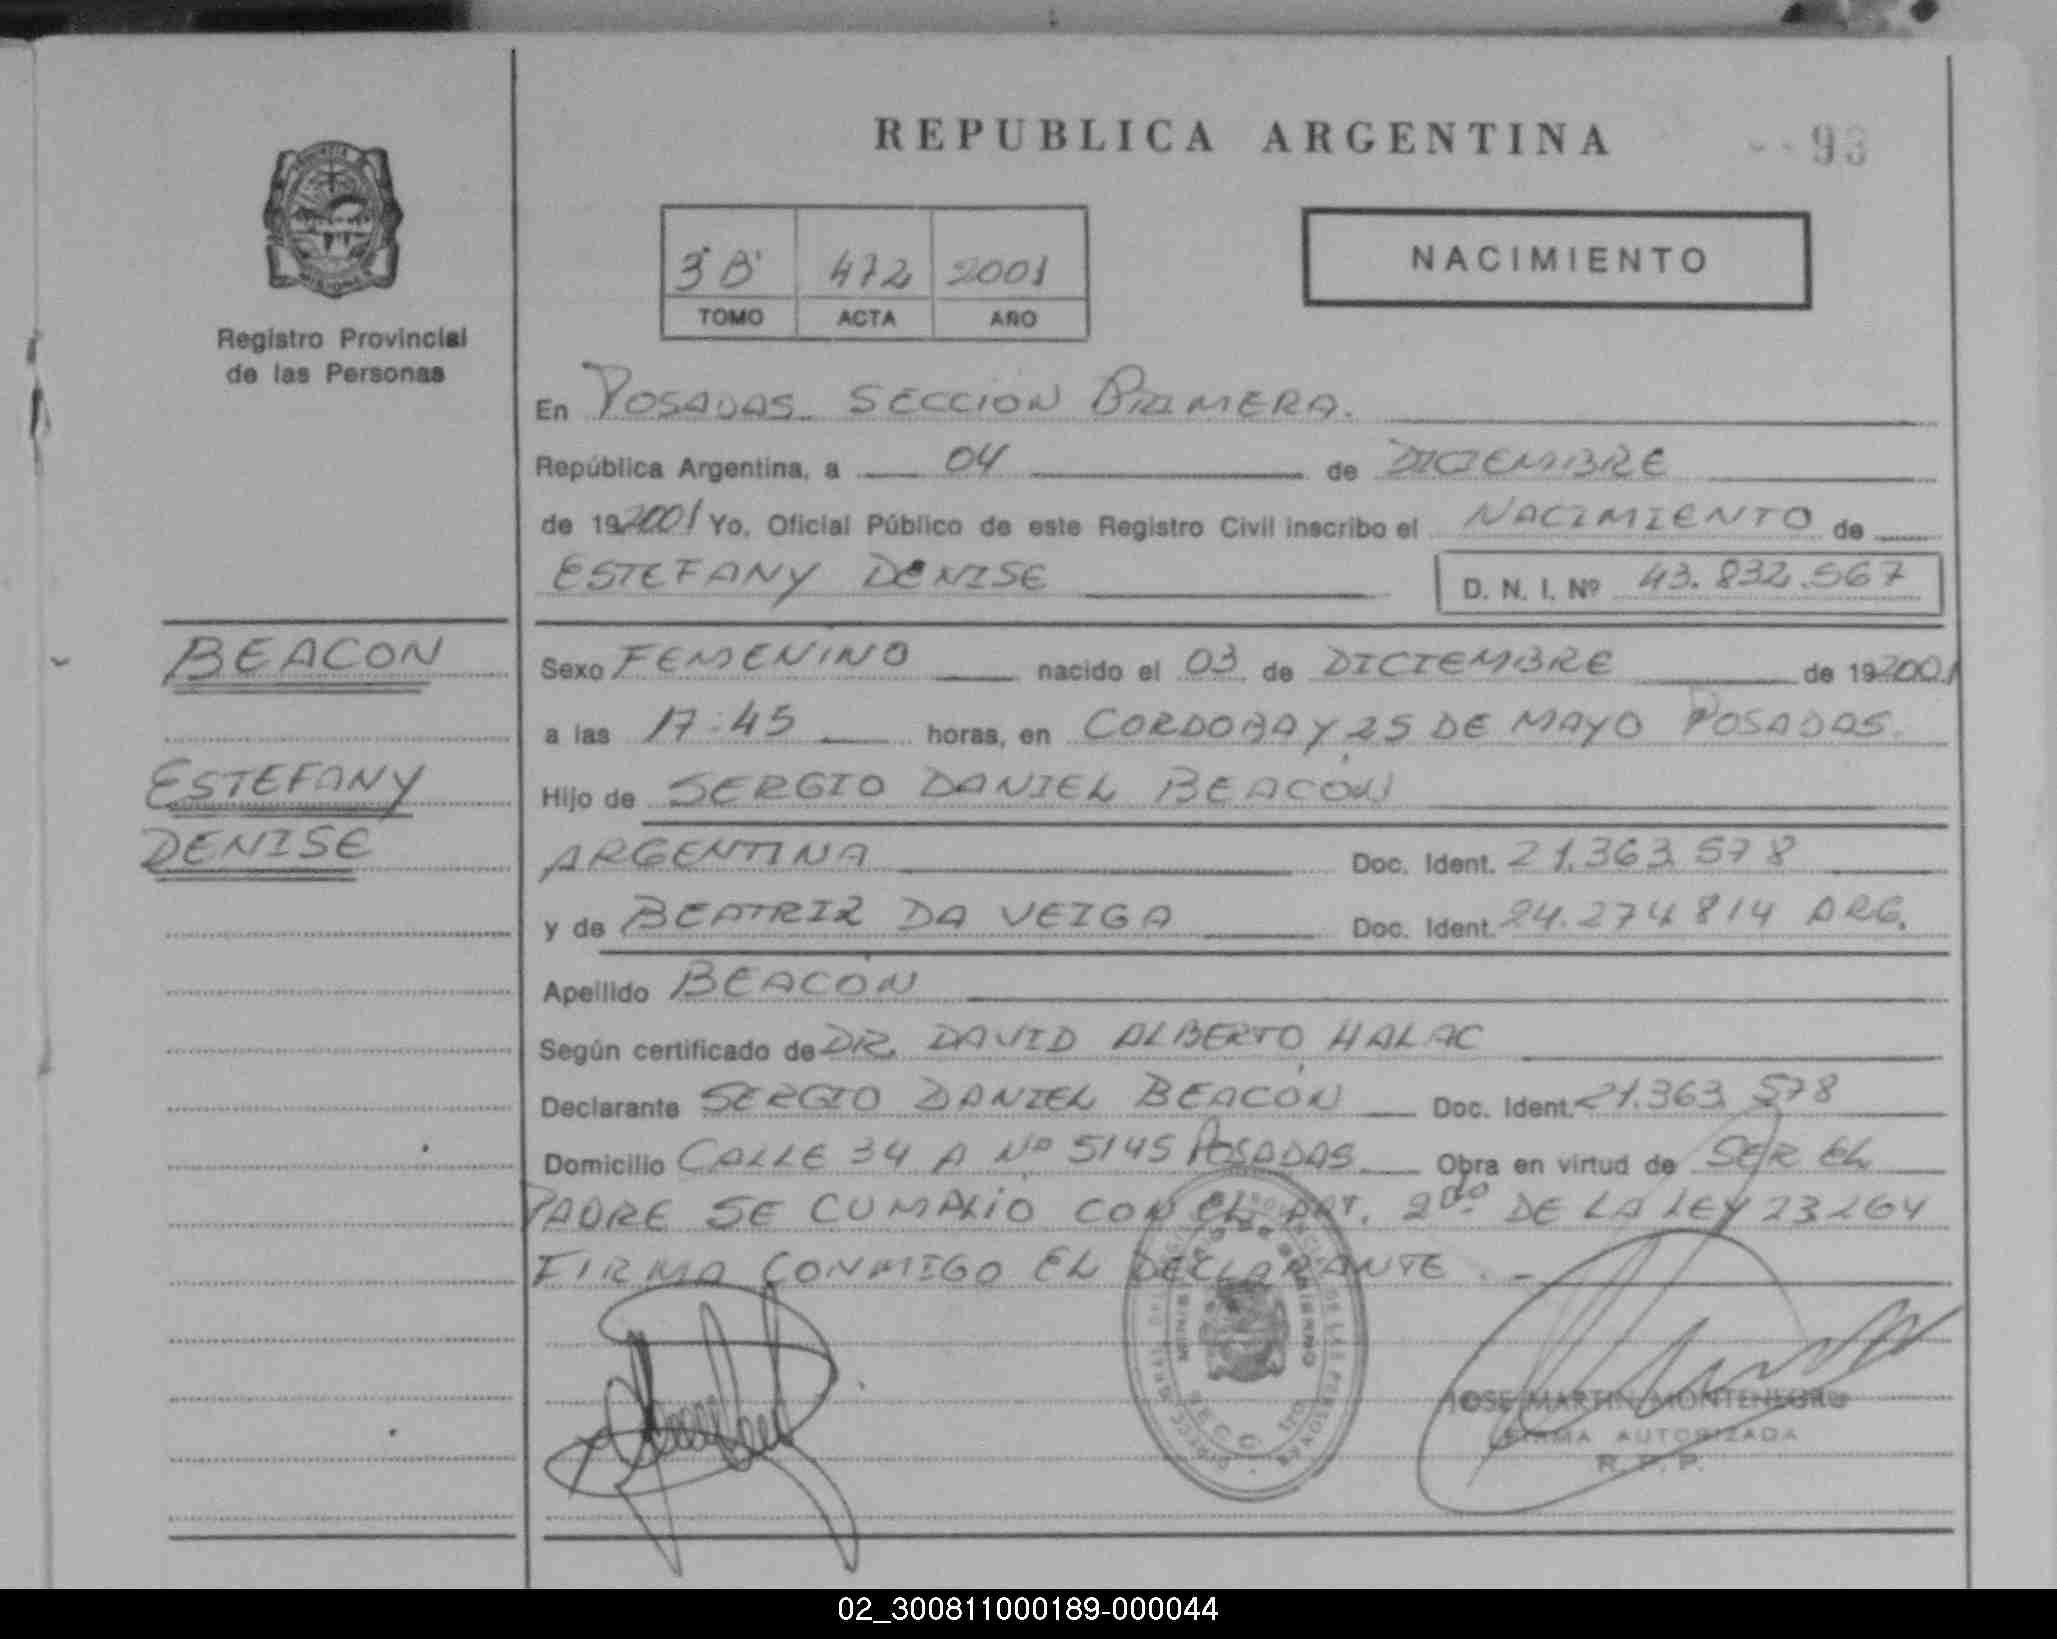 REPUBLICA ARGENTINA
93
Registro Provincial
de las Personas
3º B' 472 2001
TOMO ACTA AÑO
NACIMIENTO
En POSADAS SECCION PRIMERA.
República Argentina, a 04 de DICIEMBRE
de 192001 Yo, Oficial Público de este Registro Civil inscribo el NACIMIENTO de
ESTEFANY DENISE D. N. I. Nº 43.832.567
BEACON
ESTEFANY
DENISE
Sexo FEMENINO nacido el 03 de DICIEMBRE de 192001
a las 17:45 horas, en CORDOBA Y 25 DE MAYO POSADAS.
Hijo de SERGIO DANIEL BEACÓN
ARGENTINA Doc. Ident. 21.363.578
y de BEATRIZ DA VEIGA Doc. Ident. 24.274.814 ARG.
Apellido BEACÓN
Según certificado de DR. DAVID ALBERTO HALAC
Declarante SERGIO DANIEL BEACÓN Doc. Ident. 21.363.578
Domicilio CALLE 34 A Nº 5145 POSADAS Obra en virtud de SER EL
PADRE SE CUMPLIÓ CON EL ART. 2do DE LA LEY 23264
FIRMA CONMIGO EL DECLARANTE.-
JOSE MARTIN MONTENEGRO
FIRMA AUTORIZADA
R. P. P.
02_300811000189-000044